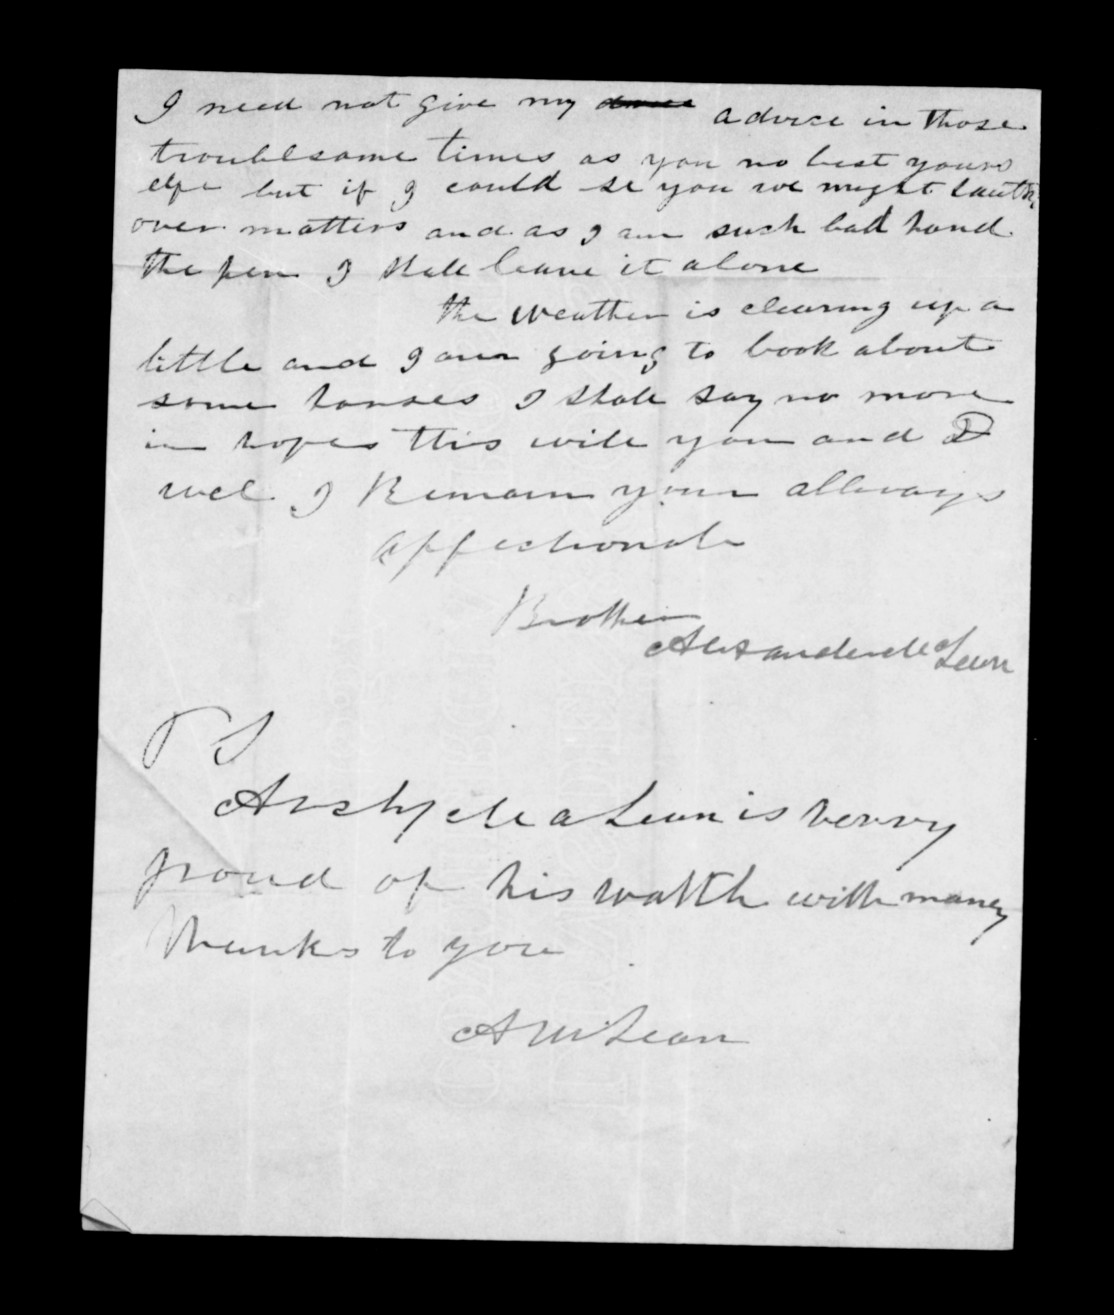 I need not give my advice in those
troublesome times as you no best yours
elfe but if I could se you we might
over matters and as I am such bad hand
the pen I shall leave it alone
the weather is clearing up a
little and I am going to book about
some horses I shall say no more
in hopes this will you and D
wel I Remain your allways
affectionate
Brother
Alexander McLean
PS
Archy McLean is verry
proud of his watth with maney
Thanks to you
A McLean